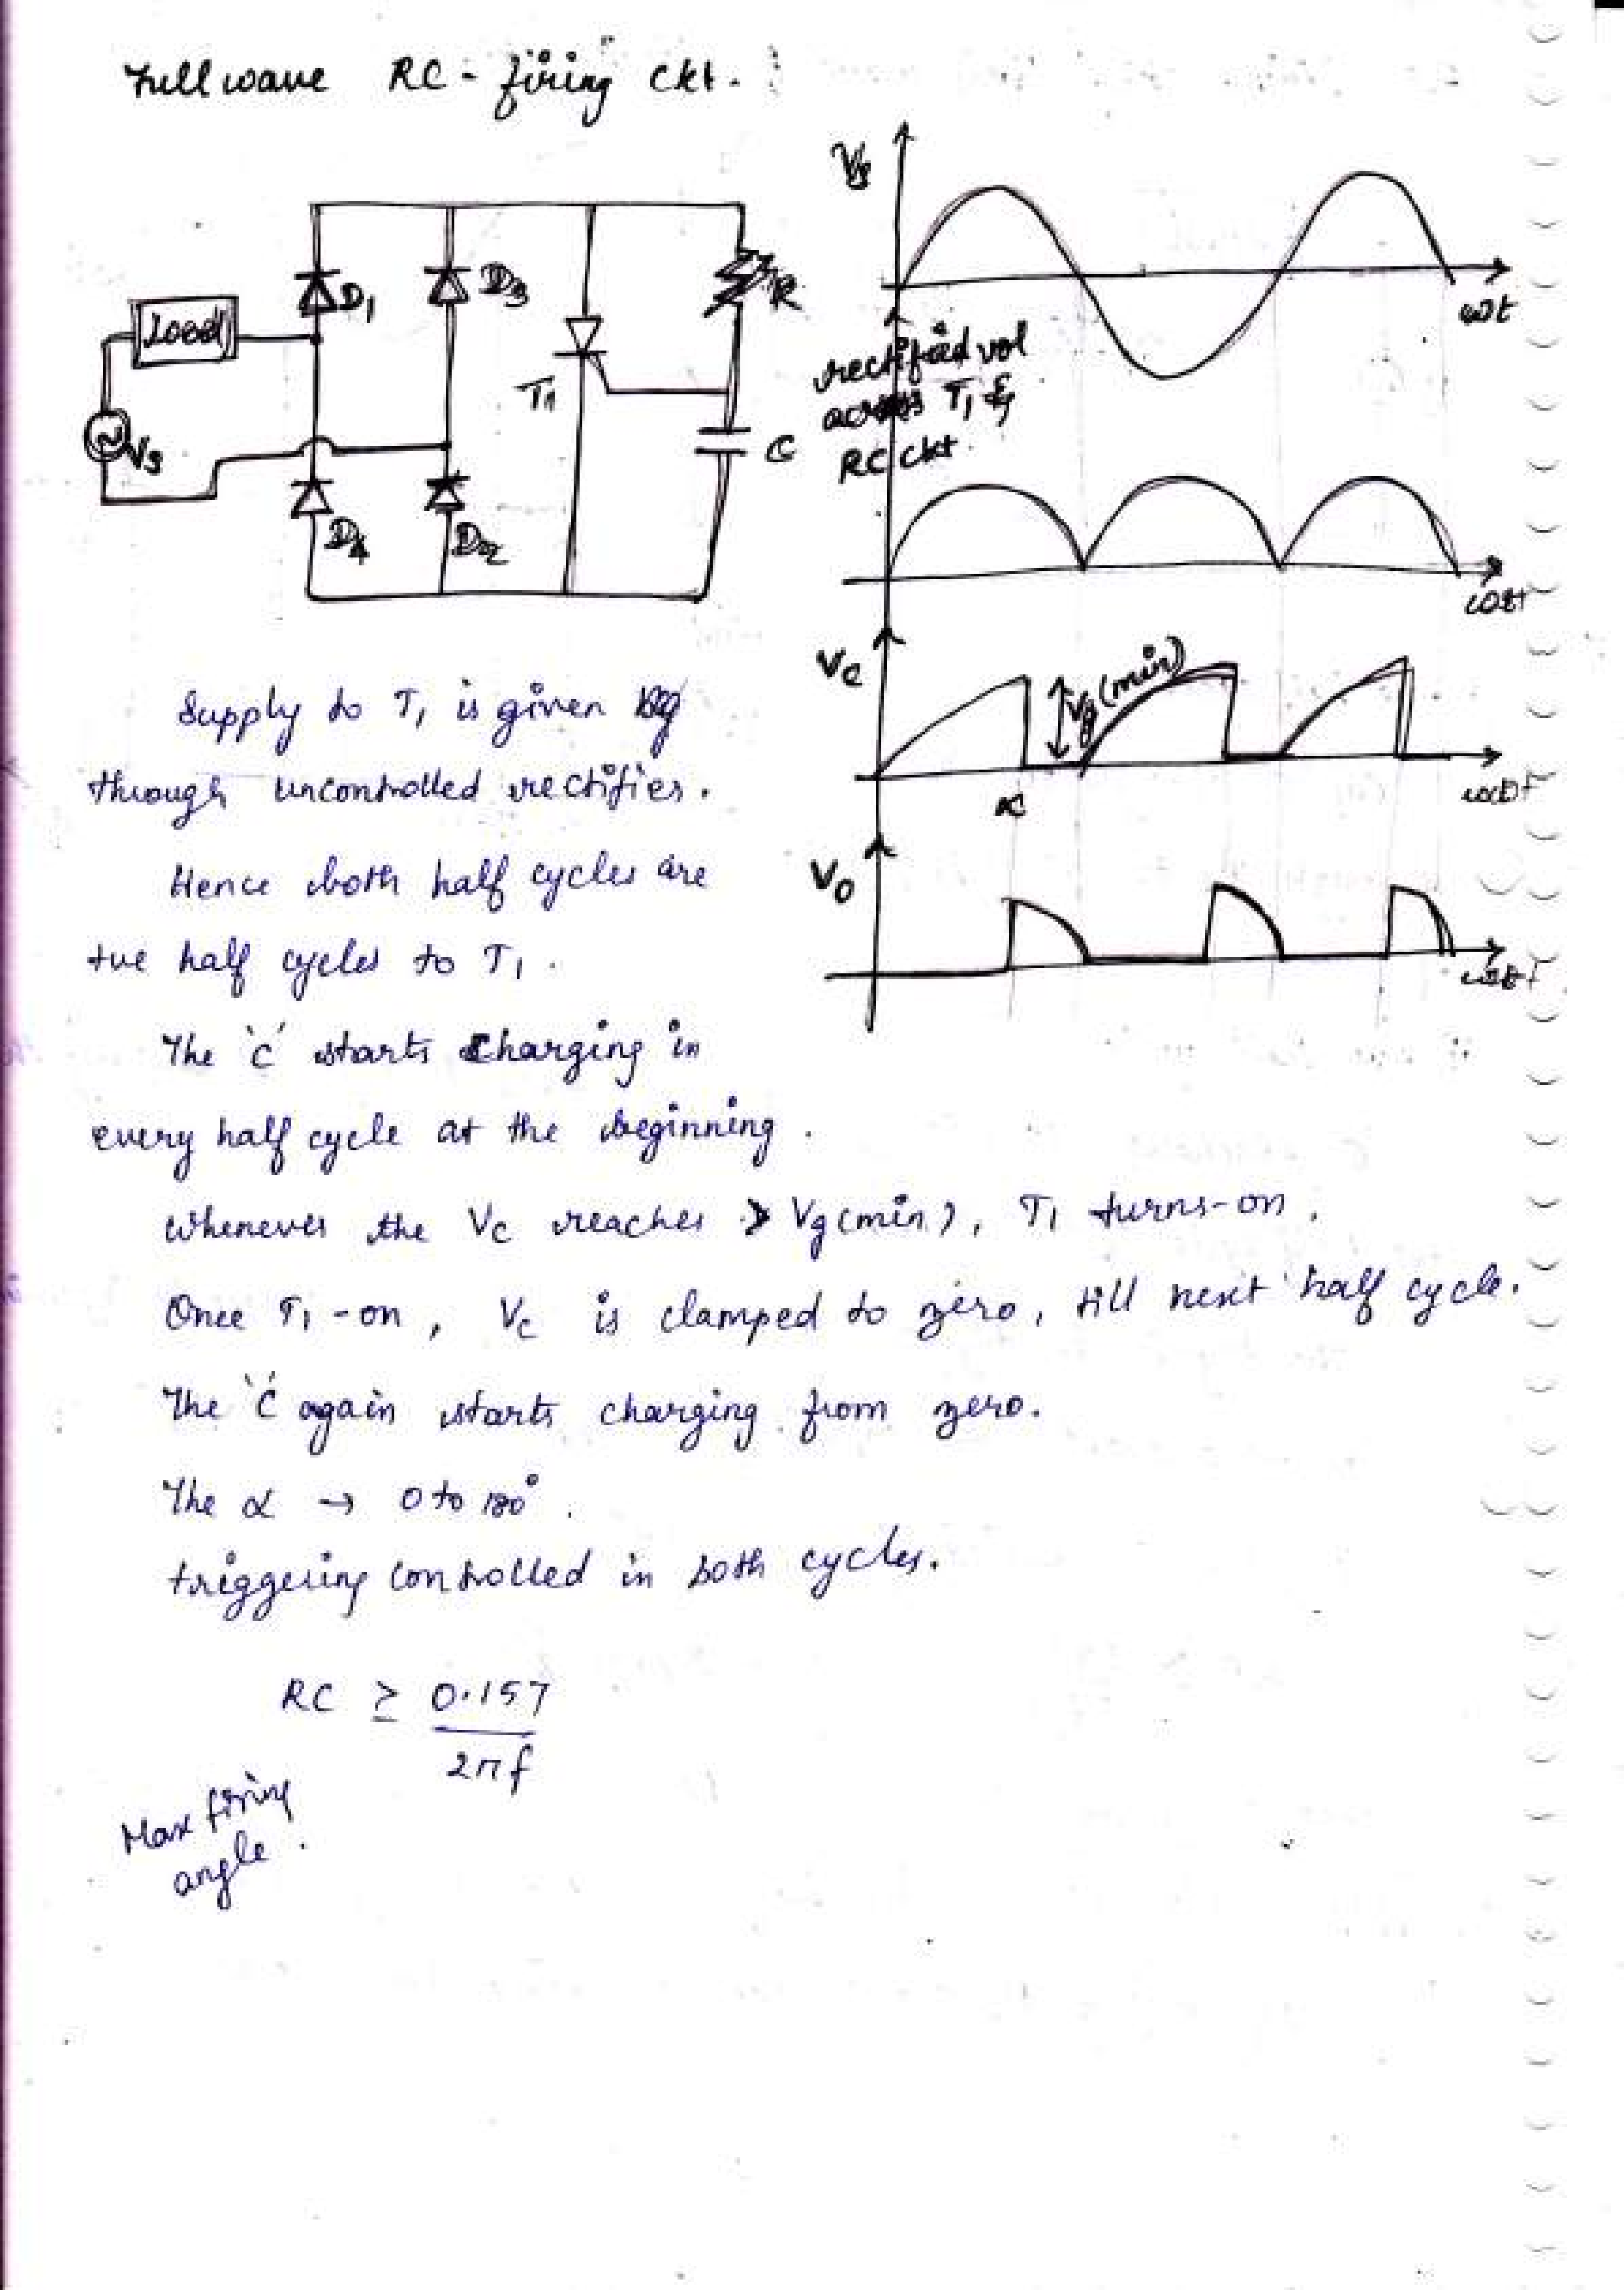 Full wave RC - firing ckt.
Load
Vs
D1
D3
D4
D2
T1
R
C
Vs
ωt
rectified vol
across T1 &
RC ckt.
ωt
Vc
Vg(min)
α
ωt
Vo
ωt
Supply to T1 is given
through uncontrolled rectifier.
Hence both half cycles are
+ve half cycles to T1.
The 'C' starts charging in
every half cycle at the beginning.
Whenever the Vc reaches > Vg(min), T1 turns-on.
Once T1-on, Vc is clamped to zero, till next half cycle.
The 'C' again starts charging from zero.
The α → 0 to 180°.
triggering controlled in both cycles.
RC ≥ 0.157
2πf
Max firing
angle.